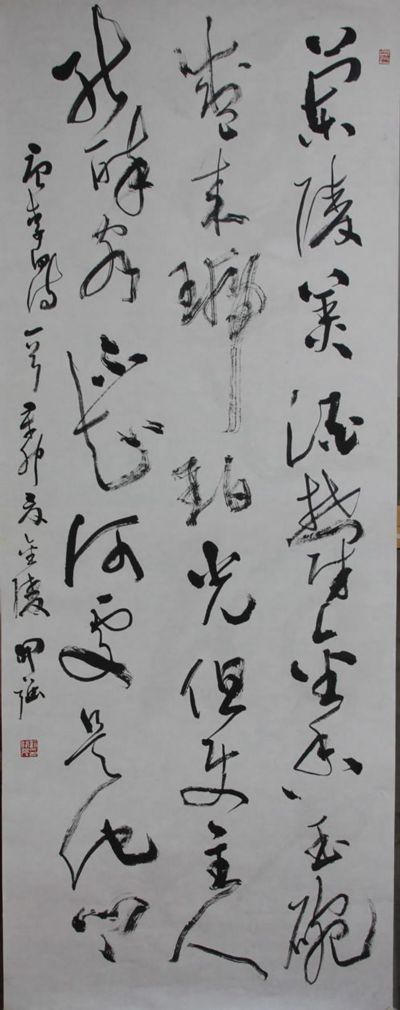 蘭陵美酒鬱金香玉碗
盛来琥珀光但使主人
能醉客不知何處是他鄉
唐李白詩一首辛卯夏金陵